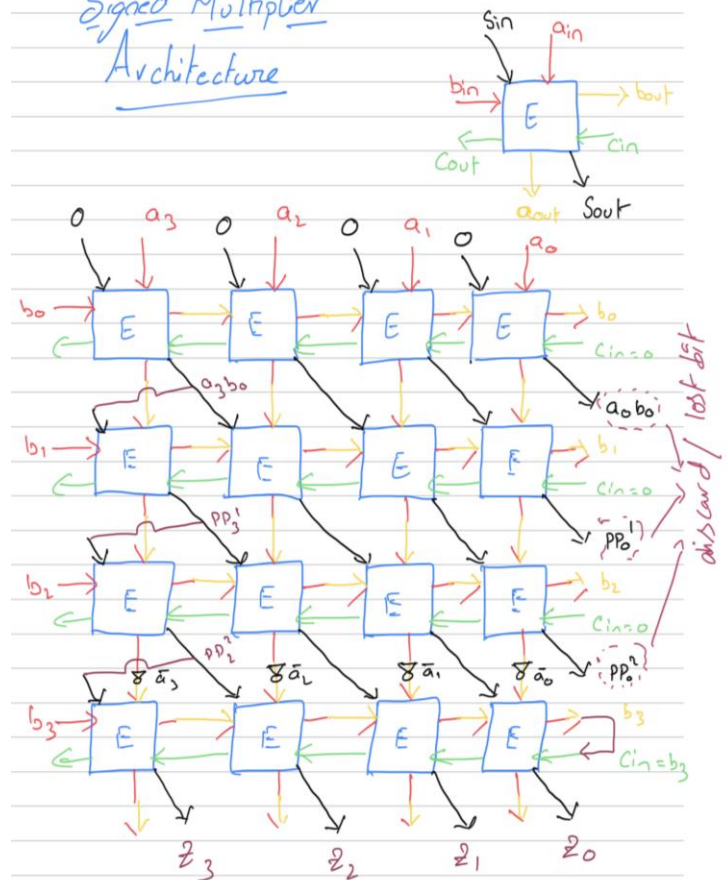 Signed Multiplier
Architecture
Sin ain
bin E bout
Cout Cin
aout Sout
0 a3 0 a2 0 a1 0 a0
b0 E E E E b0
Cin=0
a3b0 a0b0
b1 E E E E b1
Cin=0
PP3¹ PP0¹
b2 E E E E b2
Cin=0
PP2² PP0²
discard / lost bit
ā3 ā2 ā1 ā0
b3 E E E E b3
Cin=b3
Z3 Z2 Z1 Z0